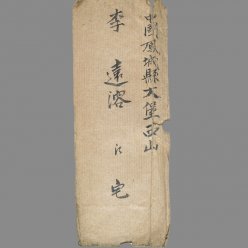 中國鳳城縣大堡西山
李遠溶 宅